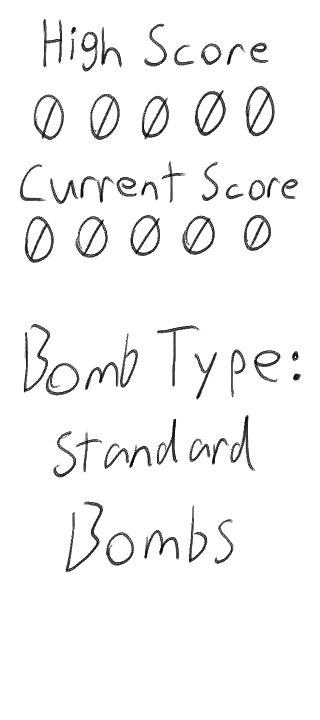 High Score
0 0 0 0 0
Current Score
0 0 0 0 0
Bomb Type:
Standard
Bombs